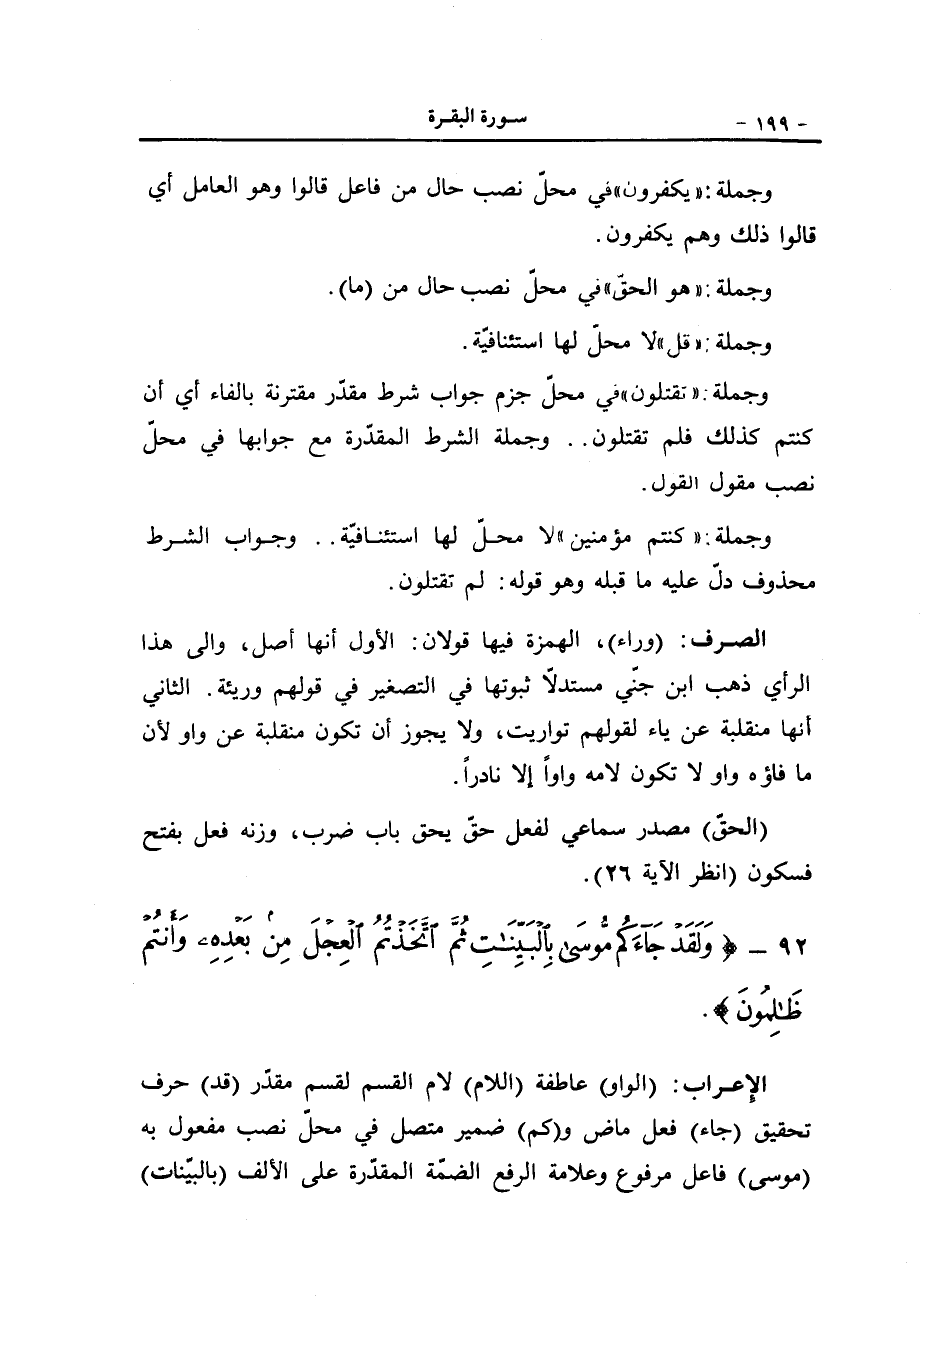 - ١٩٩ - سـورة البقـرة
وجملة :« يكفرون»في محلّ نصب حال من فاعل قالوا وهو العامل أي
قالوا ذلك وهم يكفرون.
وجملة :« هو الحقّ»في محلّ نصب حال من (ما).
وجملة :« قل»لا محلّ لها استئنافيّة.
وجملة :« تقتلون»في محلّ جزم جواب شرط مقدّر مقترنة بالفاء أي أن
كنتم كذلك فلم تقتلون.. وجملة الشرط المقدّرة مع جوابها في محلّ
نصب مقول القول.
وجملة :« كنتم مؤمنين»لا محـلّ لها استئنـافيّة.. وجـواب الشـرط
محذوف دلّ عليه ما قبله وهو قوله: لم تقتلون.
الصـرف: (وراء)، الهمزة فيها قولان: الأول أنها أصل، والى هذا
الرأي ذهب ابن جنّي مستدلّا ثبوتها في التصغير في قولهم وريئة. الثاني
أنها منقلبة عن ياء لقولهم تواريت، ولا يجوز أن تكون منقلبة عن واو لأن
ما فاؤه واو لا تكون لامه واواً إلا نادراً.
(الحقّ) مصدر سماعي لفعل حقّ يحق باب ضرب، وزنه فعل بفتح
فسكون (انظر الآية ٢٦).
٩٢ ــ ﴿ وَلَقَدْ جَآءَكُم مُّوسَىٰ بِٱلْبَيِّنَٰتِ ثُمَّ ٱتَّخَذْتُمُ ٱلْعِجْلَ مِنۢ بَعْدِهِۦ وَأَنتُمْ
ظَٰلِمُونَ ﴾.
الإعـراب: (الواو) عاطفة (اللام) لام القسم لقسم مقدّر (قد) حرف
تحقيق (جاء) فعل ماض و(كم) ضمير متصل في محلّ نصب مفعول به
(موسى) فاعل مرفوع وعلامة الرفع الضمّة المقدّرة على الألف (بالبيّنات)